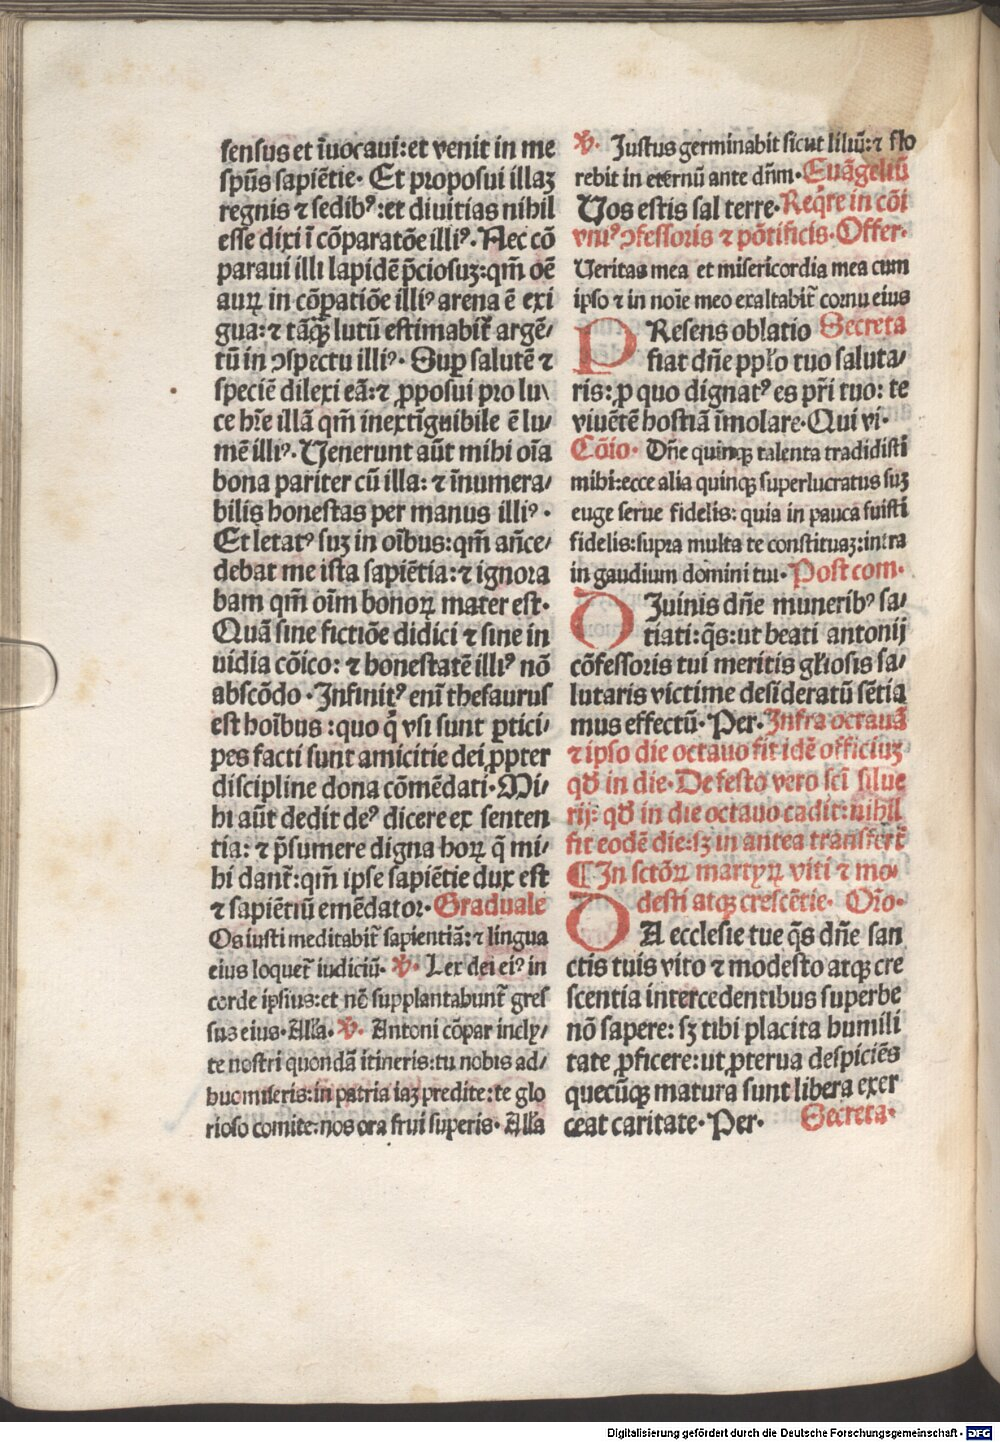 sensus et īuocaui: et venit in me
spūs sapiētie. Et proposui illaʒ
regnis ⁊ sedibꝰ: et diuitias nihil
esse dixi ī cōparatōe illiꝰ. Nec cō
paraui illi lapidē p̄ciosuʒ: qm̄ oē
auꝝ in cōpatiōe illiꝰ arena ē exi
gua: ⁊ tāq̄ʒ lutū estimabit̄ argē/
tū in ↄspectu illiꝰ. Suꝑ salutē ⁊
speciē dilexi eā: ⁊ ꝓposui pro lu/
ce hr̄e illā qm̄ inextīguibile ē lu/
mē illiꝰ. Venerunt aūt mihi oīa
bona pariter cū illa: ⁊ īnumera/
bilis honestas per manus illiꝰ.
Et letatꝰ suʒ in oībus: qm̄ añce/
debat me ista sapiētia: ⁊ ignora
bam qm̄ oīm bonoꝝ mater est.
Quā sine fictiōe didici ⁊ sine in
uidia cōico: ⁊ honestatē illiꝰ nō
abscōdo. Infinitꝰ enī thesaurus
est hoībus: quo q̇ vsi sunt ꝑtici/
pes facti sunt amicitie dei ꝓpter
discipline dona cōmēdati. Mi/
hi aūt dedit deꝰ dicere ex senten
tia: ⁊ p̄sumere digna hoꝝ q̄ mi/
hi dant̄: qm̄ ipse sapiētie dux est
⁊ sapiētiū emēdator. Graduale
Os iusti meditabit̄ sapientiā: ⁊ lingua
eius loquet̄ iudiciū. ℣. Lex dei eiꝰ in
corde ipsius: et nō supplantabunt̄ gres
sus eius. Alľa. ℣. Antoni cōpar incly/
te nostri quondā itineris: tu nobis ad/
huc miseris: in patria iaʒ predite: te glo
rioso comite: nos ora frui superis. Alľa
℣. Justus germinabit sicut liliū: ⁊ flo
rebit in eternū ante dñm. Euāgeliū
Vos estis sal terre. Req̇re in cōi
vniꝰ ↄfessoris ⁊ pōtificis. Offer.
Veritas mea et misericordia mea cum
ipso ⁊ in noīe meo exaltabit̄ cornu eius
PResens oblatio Secreta
fiat dñe pplo tuo saluta/
ris: ꝑ quo dignatꝰ es pr̄i tuo: te
viuētē hostiā īmolare. Qui vi.
Cōio. Dñe quinqʒ talenta tradidisti
mihi: ecce alia quinqʒ superlucratus suʒ
euge serue fidelis: quia in pauca fuisti
fidelis: supra multa te constituaʒ: intra
in gaudium domini tui. Post com.
DIuinis dñe muneribꝰ sa/
tiati: q̄s: ut beati antonij
cōfessoris tui meritis gľiosis sa/
lutaris victime desideratū sētia
mus effectū. Per. Infra octauā
⁊ ipso die octauo fit idē officiuʒ
qđ in die. De festo vero sci̅ silue
rij: qđ in die octauo cadit: nihil
fit eodē die: sʒ in antea transfert̄
¶ In sctōꝝ martyꝝ viti ⁊ mo/
desti atqʒ crescētie. Orō.
DA ecclesie tue q̄s dñe san
ctis tuis vito ⁊ modesto atqʒ cre
scentia intercedentibus superbe
nō sapere: sʒ tibi placita humili
tate ꝓficere: ut ꝓterua despiciēs
quecūqʒ matura sunt libera exer
ceat caritate. Per. Secreta.
Digitalisierung gefördert durch die Deutsche Forschungsgemeinschaft - DFG